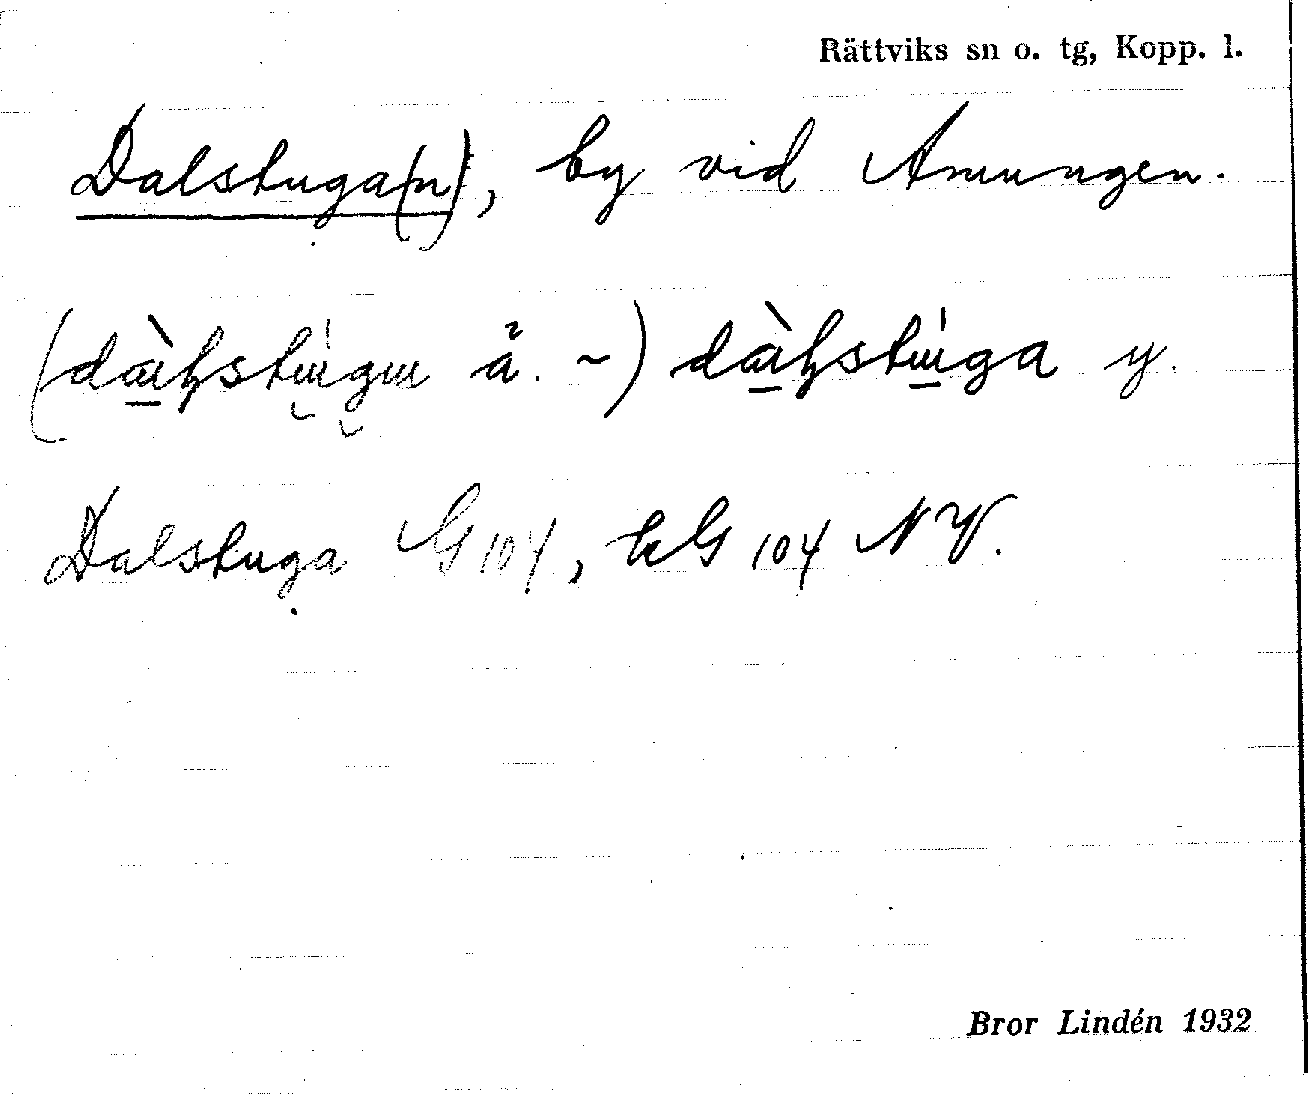 Rättviks sn o. tg, Kopp. l.
Dalstuga(n), by vid Amungen.
å. ~) y.
Dalstuga G 104, kG 104 NV.
Bror Lindén 1932